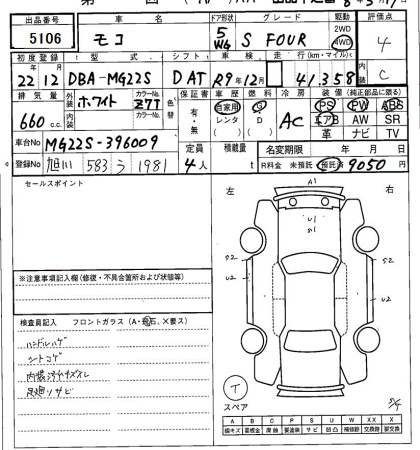 出品番号 車名 ドア形状 グレード 駆動 評価点
5106 モコ 5 WG S FOUR 2WD 4WD 4
初度登録 型式 シフト 車検 走行(km・マイル) 内装
22年12月 DBA-MG22S DAT R9年12月 41,358 C
排気量 外装 ホワイト カラーNo. Z7T 色替 保証書 車歴 燃料 冷房 装備(純正部品に限る)
660cc 内装 カラーNo. 有・無 自家用 レンタ G D AC PS PW ABS
エアB AW SR
革 ナビ TV
車台No MG22S-396009 定員 積載量 名変期限 年 月 日
登録No 旭川 583 う 1981 4人 t R料金 未預託 預託済 9050円
セールスポイント
左 A1 右
U1
S1
S2 S2
U2 U2
※注意事項記入欄(修復・不具合箇所および状態等)
検査員記入 フロントガラス(A・飛石、X要ス)
ハンドルハゲ
シートコゲ
足廻リサビ
T
スペア
A B C P S U W X XX
線キズ 腐蝕 要塗装 サビ 凹凸 補修跡 交換跡